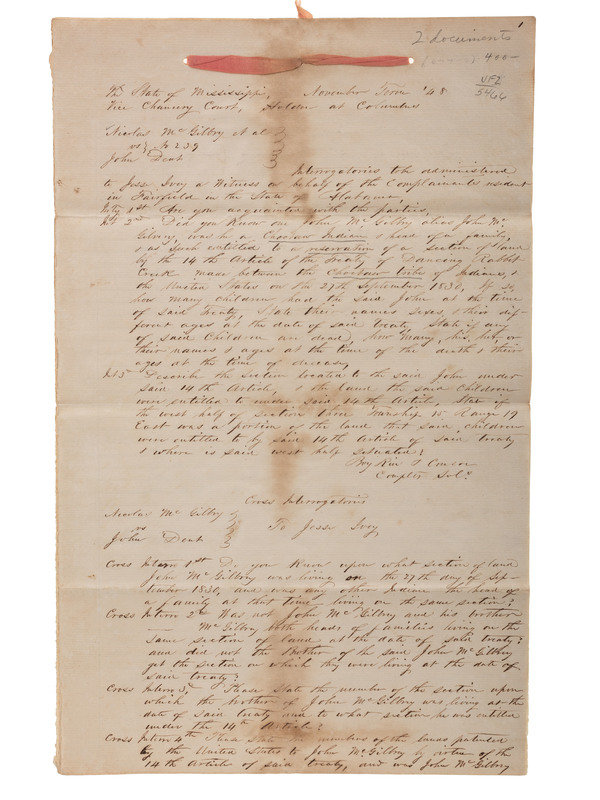 1
2 documents
400-
VFZ
5466
The State of Mississippi, November Term '48
Vice Chancery Court, Holden at Columbus
Nicolas McGilbry et al
vs No 239
John Dent
Interrogatories to be administered
to Jesse Ivey a Witness on behalf of the Complainants resident
in Fairfield in the State of Alabama,
Inty 1st Are you acquainted with the parties,
Int 2nd Did you Know one John McGilbry alias John Mc
Gilvery, was he a Choctaw Indian, & head of a family,
& as such entitled to a reservation of a section of land
by the 14th Article of the Treaty of Dancing Rabbit
Creek made between the Choctaw tribe of Indians, &
the United States on the 27th September 1830, If so,
how many children had the said John at the time
of said Treaty, State their names sexes, & their dif-
ferent ages at the date of said treaty, State if any
of said Children are dead, how many, his, her, or
their names & ages at the time of the death & their
ages at the time of decease,
Int 3 Describe the section located to the said John under
said 14th Article, & the land the said Children
were entitled to under said 14th Article, State if
the west half of section three Township 15 Range 19
East was a portion of the land that said children
were entitled to by said 14th Article of said treaty
& where is said west half situated?
Complts Solr
Cross Interrogatories
Nicolas McGilbry
vs To Jesse Ivey
John Dent
Cross Interro 1st Do you Know upon what section of land
John McGilbry was living on the 27th day of Sep-
tember 1830, and was any other Indian the head of
a family at that time living on the same section?
Cross Interro 2nd Was not John McGilbry and his brother
McGilbry both heads of families living on the
same section of land at the date of said treaty?
and did not the Brother of he said John McGilbry
get the section on which they were living at the date of
said treaty?
Cross Interro 3d Please State the number of the section upon
which the brother of John McGilbry was living at the
date of said treaty and to what section he was entitled
under the 14th Article?
Cross Interro 4th Please State the numbers of the lands patented
by the United States to John McGilbry by virtue of the
14th Article of said treaty, and was John McGilbry